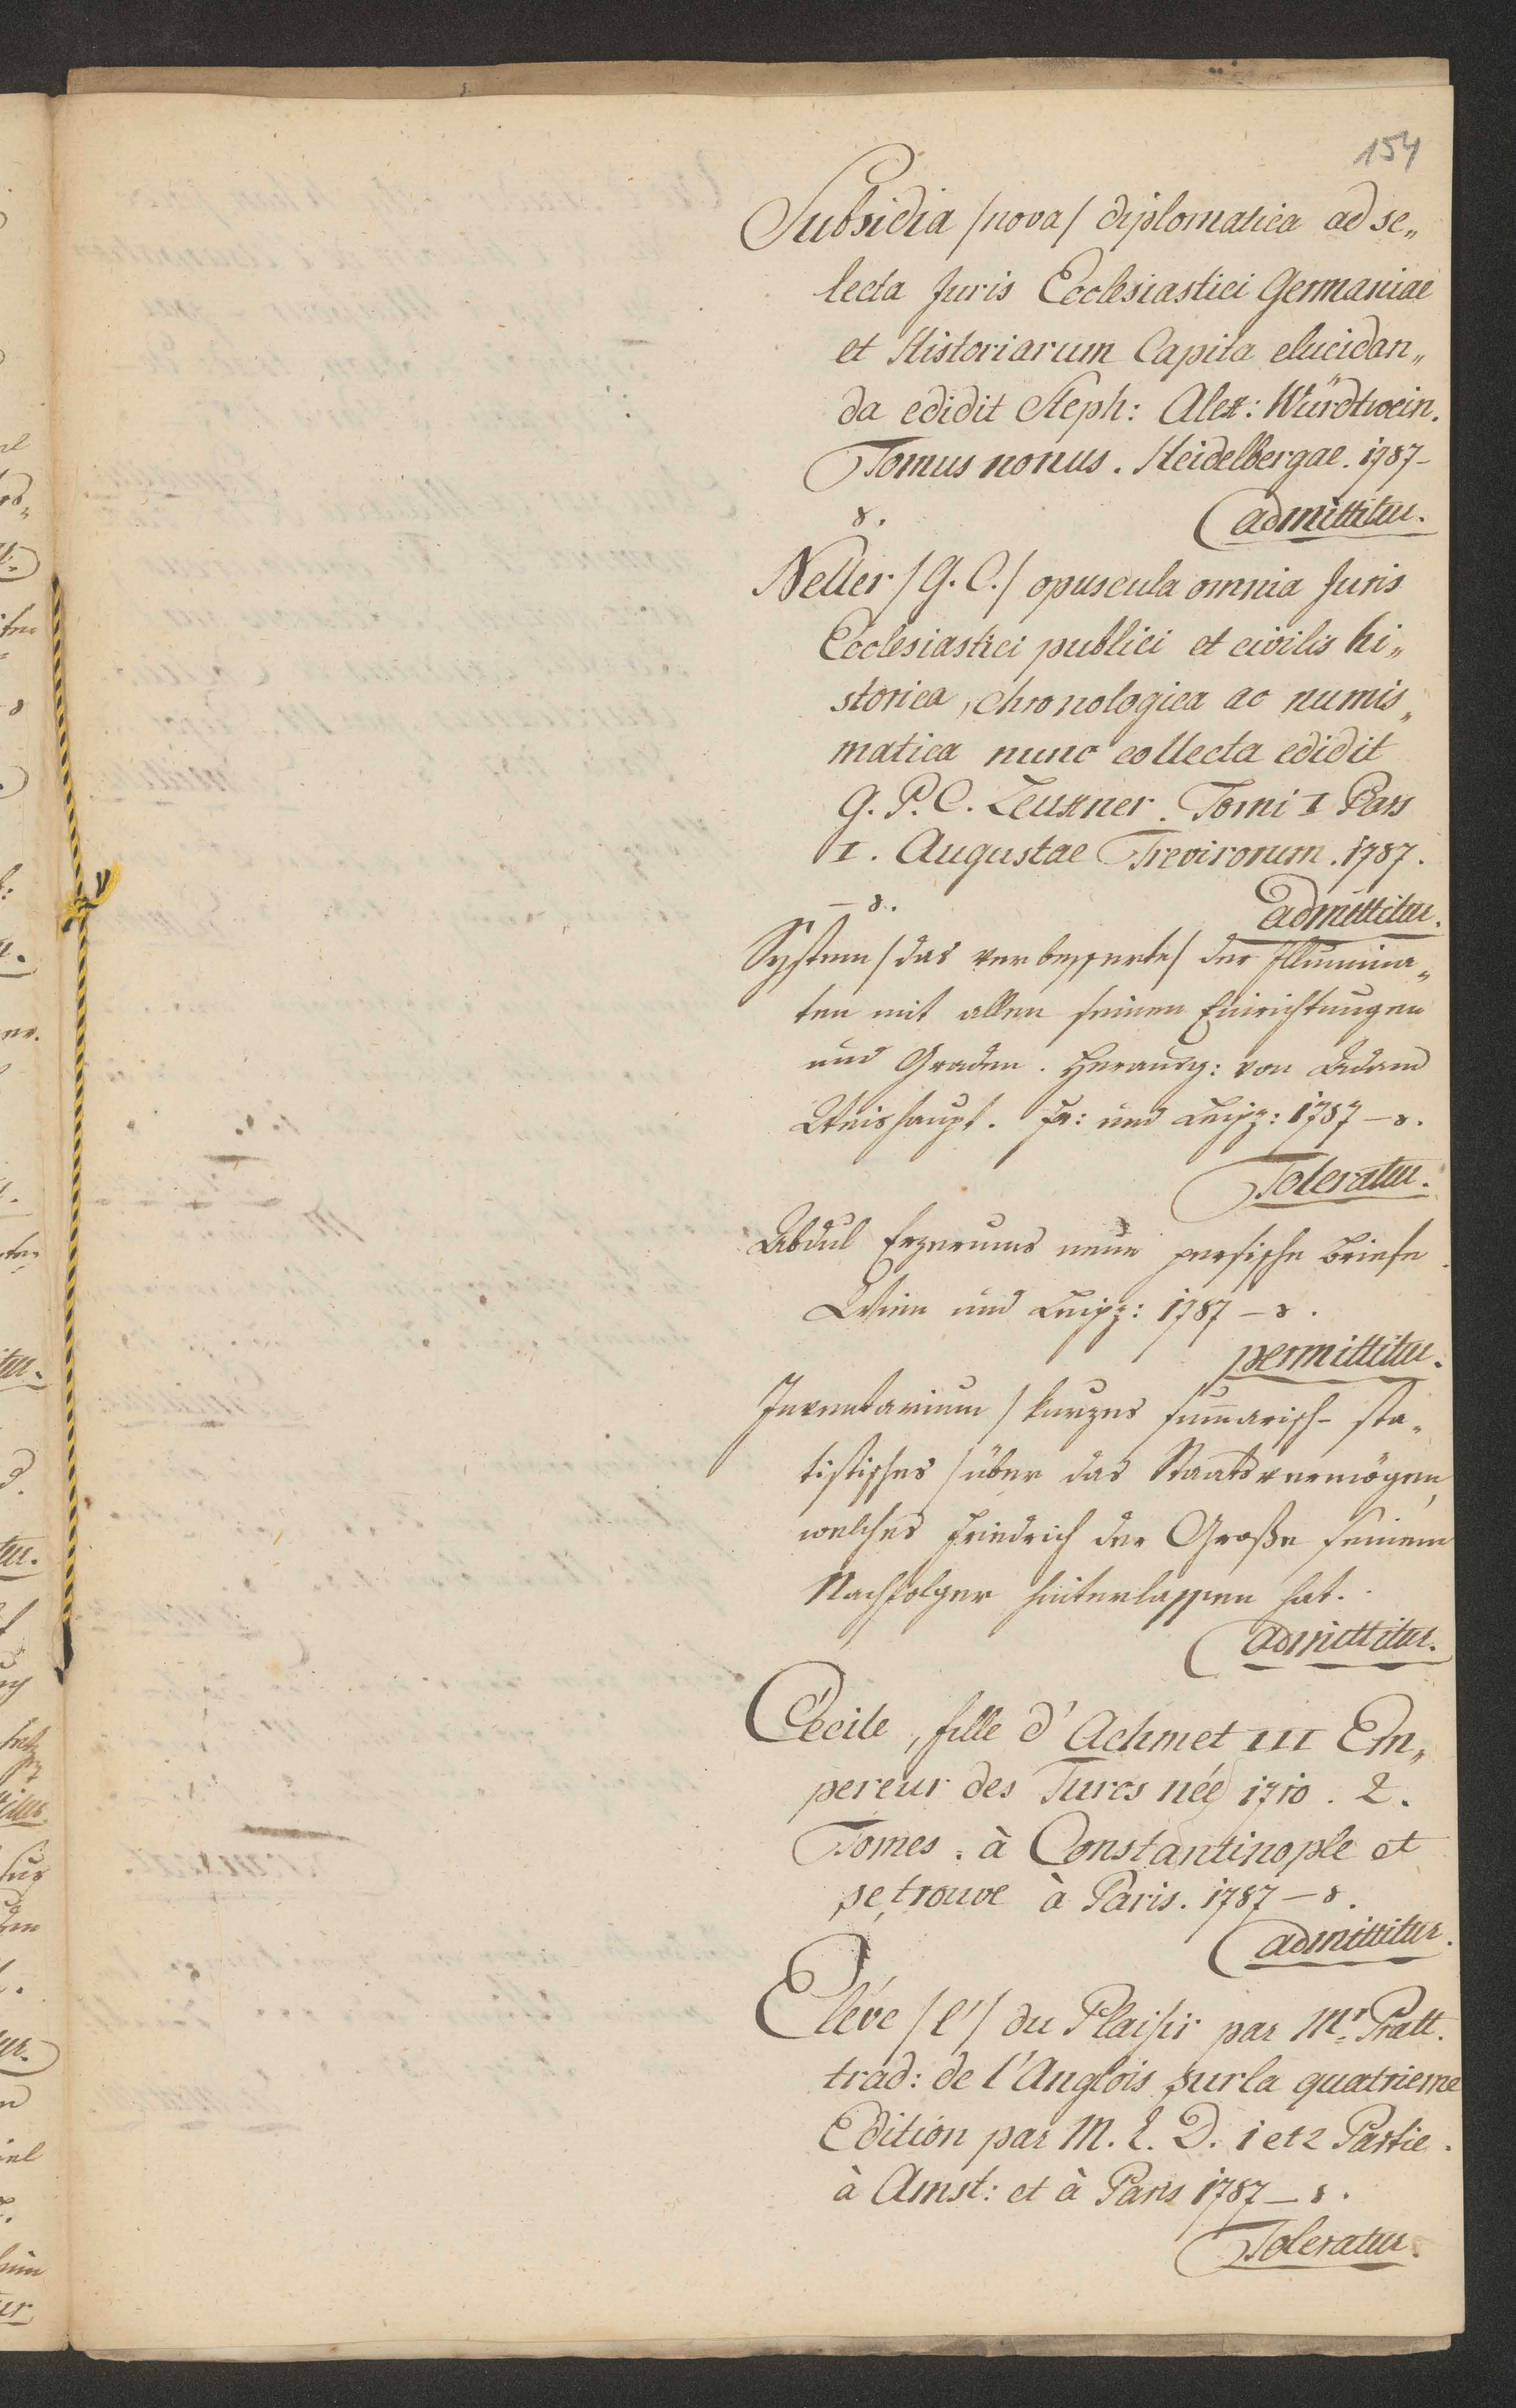 154
Subsidia /nova/ diplomatica ad se„
lecta Juris Ecclesiastici Germaniae
et Historiarum Capita elucidan„
da edidit Steph: Alex: Würdtwein.
Tomus nonus. Heidelbergae. 1787–
8. admittitur.
Neller /G. C./ opuscula omnia Juris
Ecclesiastici publici et civilis hi„
storica, chronologica ac numis„
matica nunc collecta edidit
G. P. C. Leuxner. Tomi I Pars
I. Augustae Trevirorum. 1787.
– 8. admittitur.
System /das verbesserte/ der Illumina„
ten mit allen seinen Einrichtungen
und Graden. Herausg: von Adam
Weishaupt. Fr: und Leipz: 1787 – 8.
Toleratur.
Abdul Erzerums neue persische Briefe.
Wien und Leipz: 1787 – 8.
permittitur.
Inventarium /kurzes sum̄arisch- sta„
tistisches/ über das Staatsvermögen,
welches Friedrich der Große seinem
Nachfolger hinterlassen hat.
admittitur.
Cécile, fille d'Achmet III Em„
pereur des Turcs née 1710. 2.
Tomes. à Constantinople et
se trouve à Paris. 1787 – 8.
admittitur.
Eléve /l'/ du Plaisir par Mr. Pratt.
trad: de l'Anglois sur la quatrieme
Edition par M. L. D. 1 et 2 Partie.
à Amst: et à Paris 1787 – 8.
Toleratur.